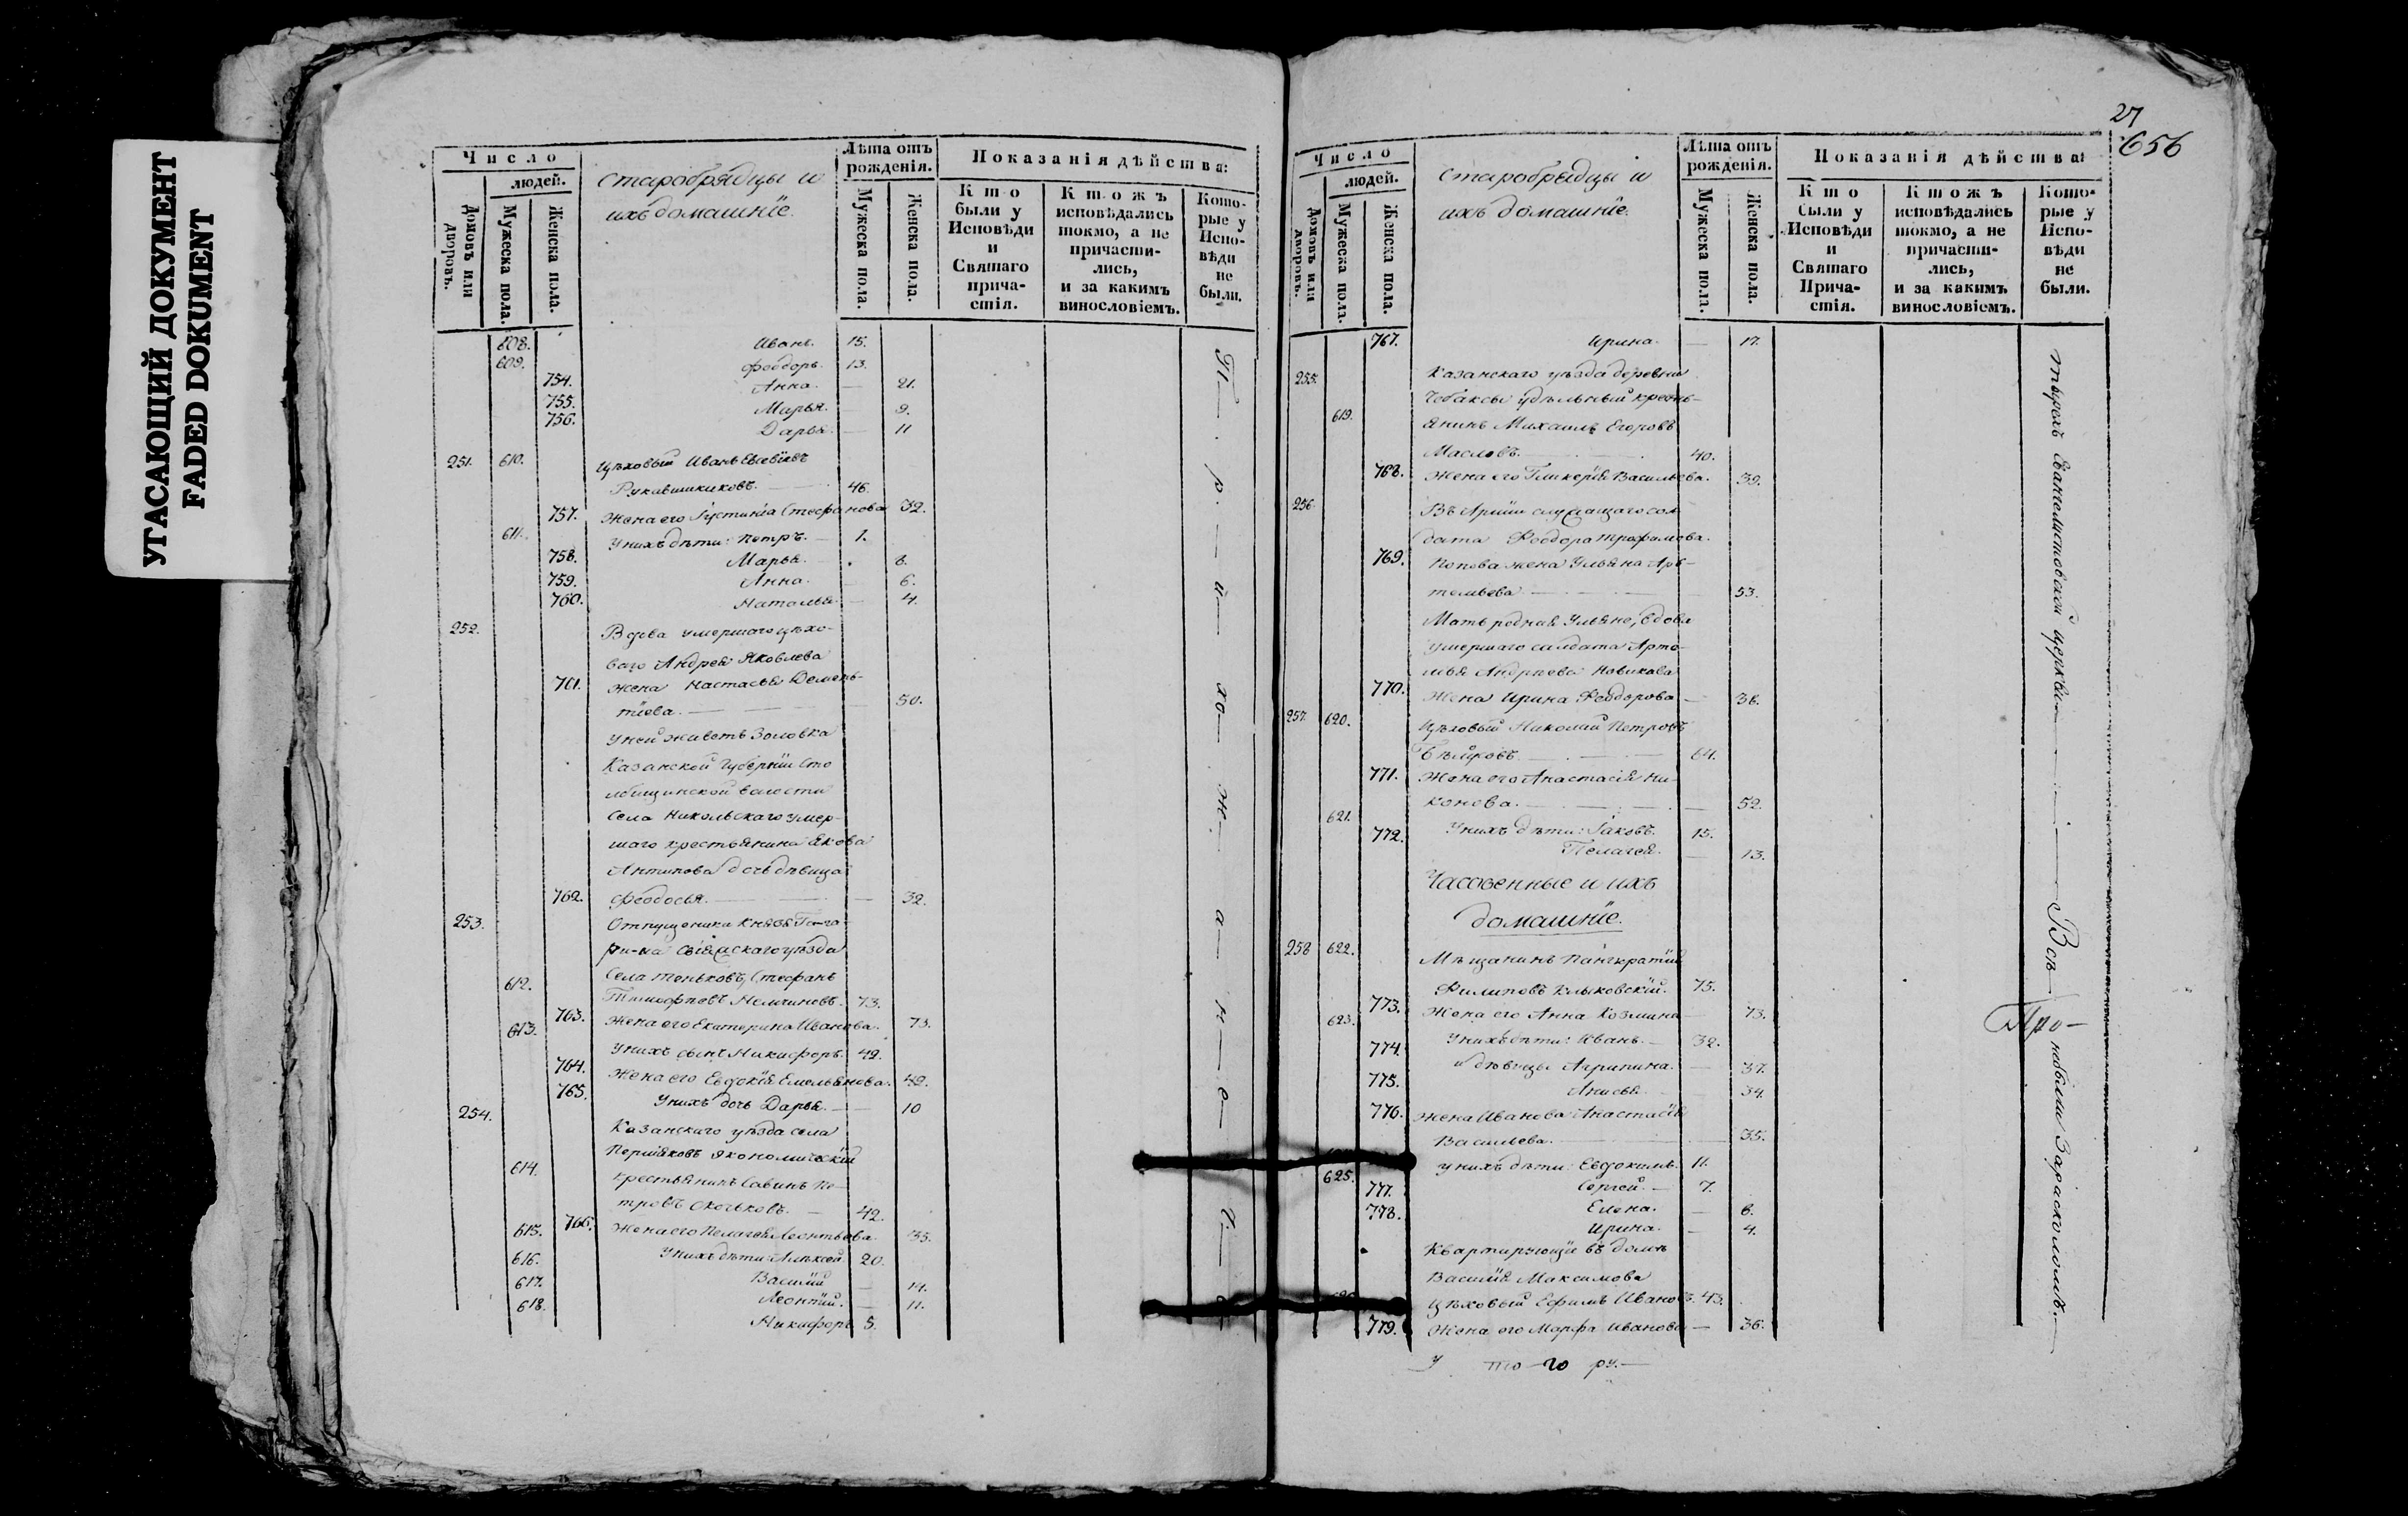 УГАСАЮЩИЙ ДОКУМЕНТ
FADED DOKUMENT
Число
людей.
Домовъ или дворовъ.
Мужеска пола.
Женска пола.
Старобрядцы и
ихъ домашнїе.
Лѣта отъ рожденія.
Мужеска пола.
Женска пола.
Показанія дѣйства:
Кто были у Исповѣди и Святаго причастія.
Ктожъ исповѣдались токмо, а не причастились, и за какимъ винословіемъ.
Которые у Исповѣди не были.
608. Иванъ. 15.
609. Феодоръ. 13.
754. Анна. — 21.
755. Марья. — 9.
756. Дарья. — 11
251. 610. Цѣховый Иванъ
Рукавишниковъ. — 46.
757. Жена его Іустинїа Стефанова 32.
611. У нихъ дѣти: Петръ. — 1.
758. Марья. 8.
759. Анна. — 6.
760. Наталья. — 4.
252. Вдова умершаго цѣхо-
ваго Андрея Яковлева
761. жена Настасья Демень-
тїева. — 50.
У ней живетъ Золовка
Казанской Губернїи Сто
лбищинской волости
Села Никольскаго умер-
шаго крестьянина Якова
Антипова дочь дѣвица
762. Феодосья. — 32.
253. Отпущеника Князя Гага-
ри-на Свіяжскаго уѣзда
612. Села Теньковъ, Стефанъ
Тимофѣевъ Немчиновъ. 73.
763. Жена его Екатерина Иванова. 73.
613. У нихъ сынъ Никифоръ. 42.
764. Жена его Евдокїя Емельянова. 42.
765. У нихъ дочь Дарья. — 10
254. Казанскаго уѣзда села
экономическїй
614. крестьянинъ Савинъ Пе-
тровъ — 42.
766. Жена его Пелагея Леонтьева. 35.
615. У нихъ дѣти: Алексѣй 20.
616. Василїй — 14.
617. Леонтїй. — 11.
618. Никифоръ 5.
27
656
Число
людей.
Домовъ или дворовъ.
Мужеска пола.
Женска пола.
Старобрядцы и
ихъ домашнїе.
Лѣта отъ рожденія.
Мужеска пола.
Женска пола.
Показанія дѣйства:
Кто были у Исповѣди и Святаго Причастія.
Ктожъ исповѣдались токмо, а не причастились, и за какимъ винословіемъ.
Которые у Исповѣди не были.
767. Ирина. — 17.
255. Казанскаго уѣзда деревни
Чебаксы удѣльный кресть-
619. янинъ Михаилъ Егоровъ
Масловъ. 40.
768. Жена его Гликерїя Васильева. 39.
256. Въ Армїи служащаго сол
дата Феодора Трофимова.
769. Попова жена Ульяна Арѳ-
тельева — 53.
Мать родная Ульяне, вдова
умершаго салдата Арте-
мья Андрѣева Новикова
770. Жена Ирина Феодорова — 36.
257. 620. Цѣховый Николай Петровъ
64.
771. Жена его Анастасїя Ни-
конова. — 52.
621. У нихъ дѣти: Іаковъ. 15.
772. Пелагея. — 13.
Часовенные и ихъ
домашнїе.
258 622. Мѣщанинъ Панкратїй
Филиповъ Клыковскїй. 75.
773. Жена его Анна Козмина — 73.
623. У нихъ дѣти: Иванъ. — 39.
774. и дѣвицы Агрипина. — 37.
775. Анисья. 34.
776. Жена Иванова Анастасїя
Васильева. — 35.
у нихъ дѣти: Евдокимъ. 11.
625. Сергей. — 7.
777. Елена. — 6.
778. Ирина. — 4.
Квартирующїе въ доме
Василїя Максимова
Цѣховый Ефимъ Ивановъ. 43.
779. Жена его Марфа Иванова — 36.
тырехъ Евангелистовской церкви — Всѣ — небыли За расколомъ. —